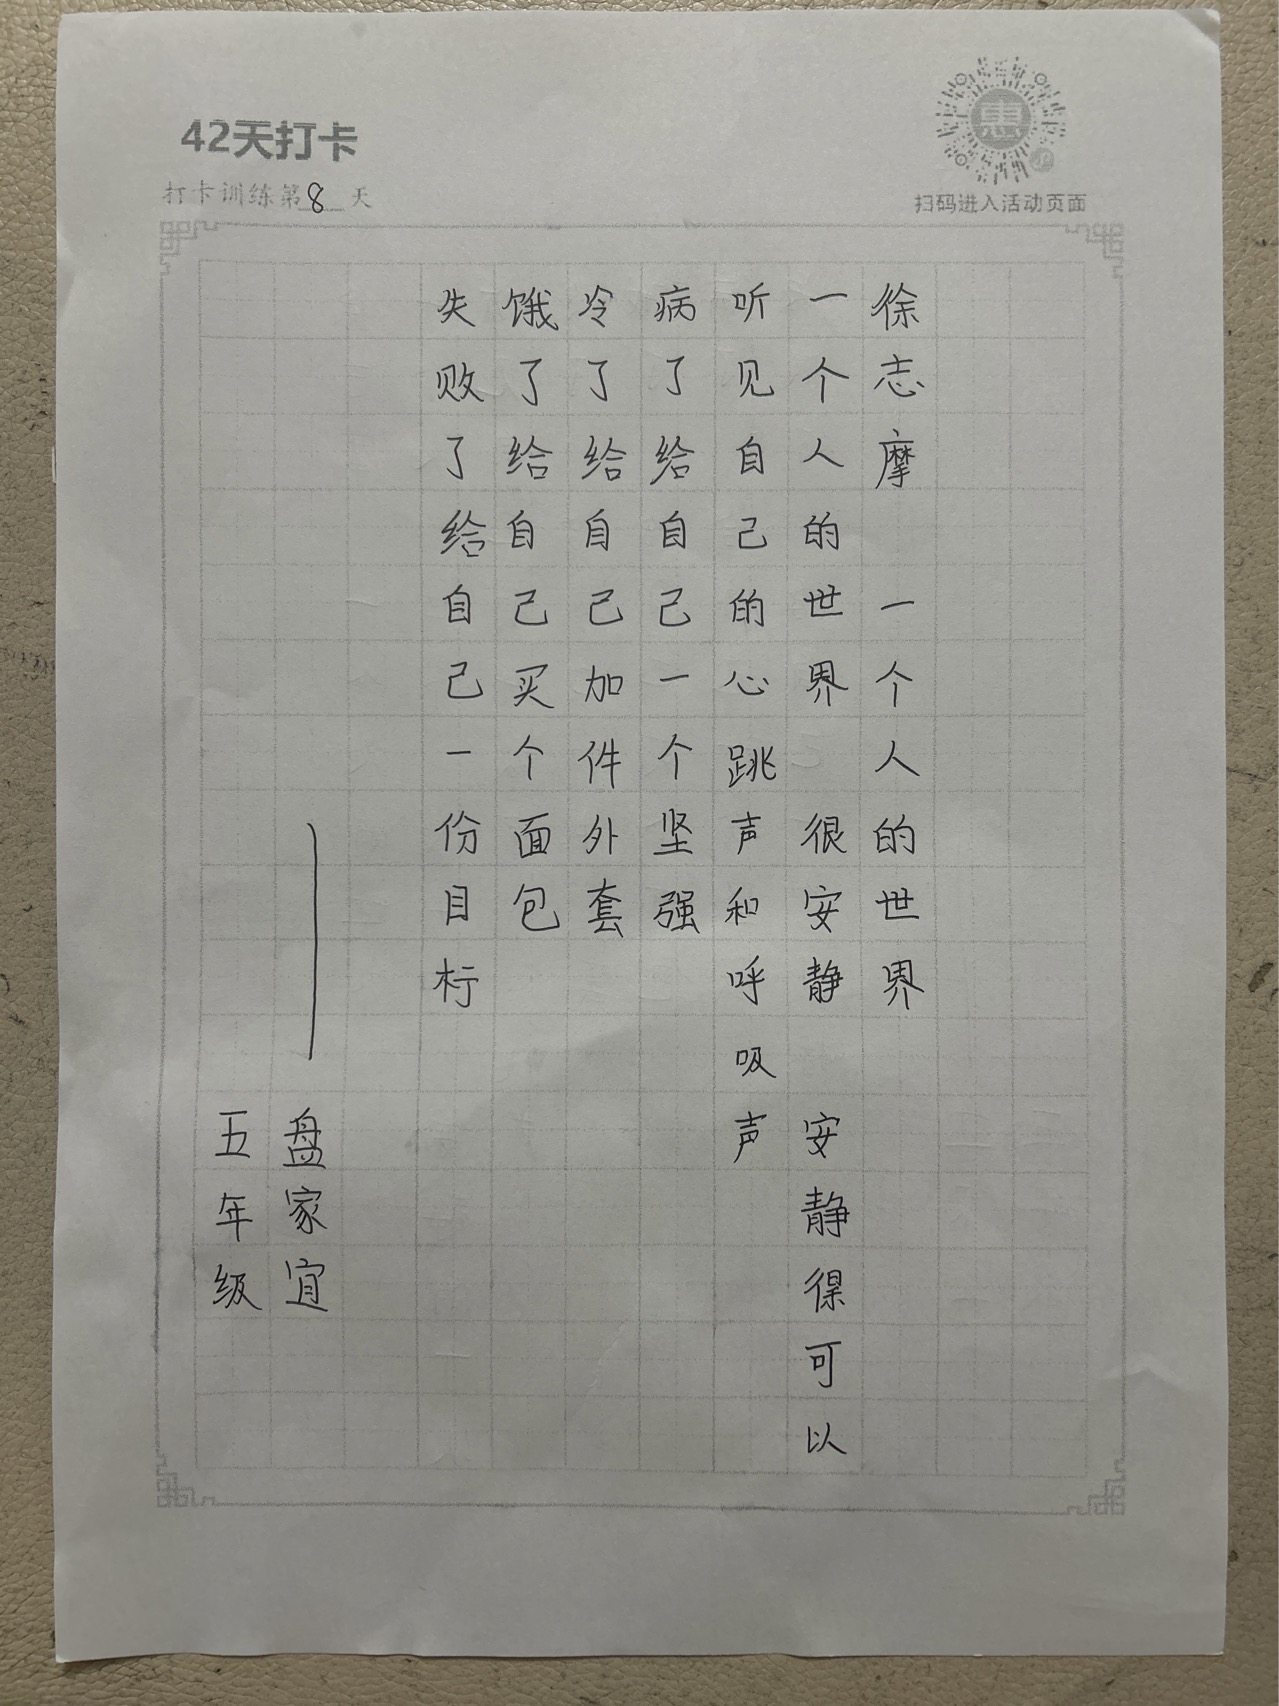 42天打卡
打卡训练第8天
惠
扫码进入活动页面
徐志摩 一个人的世界
一个人的世界 很安静 安静得可以
听见自己的心跳声和呼吸声
病了给自己一个坚强
冷了给自己加件外套
饿了给自己买个面包
失败了给自己一份目标
——盘家宜
五年级